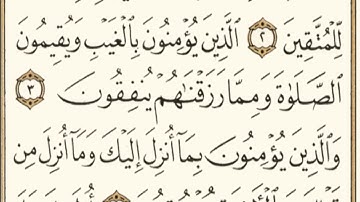 لِّلْمُتَّقِينَ ٢ الَّذِينَ يُؤْمِنُونَ بِالْغَيْبِ وَيُقِيمُونَ
الصَّلَوٰةَ وَمِمَّا رَزَقْنَٰهُمْ يُنفِقُونَ ٣
وَالَّذِينَ يُؤْمِنُونَ بِمَآ أُنزِلَ إِلَيْكَ وَمَآ أُنزِلَ مِن